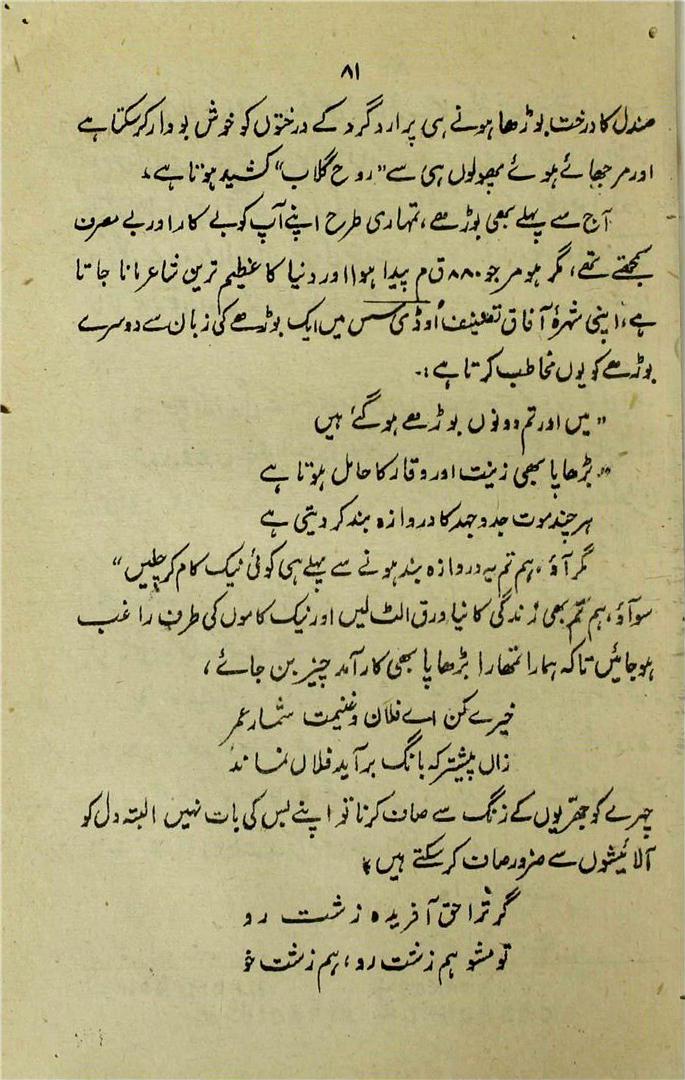 ۸۱
صندل کا درخت بوڑھا ہونے ہی پر ارد گرد کے درختوں کو خوش بو دار کر سکتا ہے
اور مرجھائے ہوئے پھولوں ہی سے "روح گلاب" کشید ہوتا ہے۔
آج سے پہلے بھی بوڑھے، تمہاری طرح اپنے آپ کو بے کار اور بے مصرف
سمجھتے تھے، مگر ہومر جو ۸۸۰ ق م پیدا ہوا اور دنیا کا عظیم ترین شاعر مانا جاتا
ہے، اپنی شہرۂ آفاق تصنیف اُوڈی سس میں ایک بوڑھے کی زبان سے دوسرے
بوڑھے کو یوں مخاطب کرتا ہے :۔
"میں اور تم دونوں بوڑھے ہو گئے ہیں
"بڑھاپا بھی زینت اور وقار کا حامل ہوتا ہے
ہر چند موت جدوجہد کا دروازہ بند کر دیتی ہے
مگر آؤ، ہم تم یہ دروازہ بند ہونے سے پہلے ہی کوئی نیک کام کر چلیں"
سو آؤ، ہم تم بھی زندگی کا نیا ورق الٹ لیں اور نیک کاموں کی طرف راغب
ہو جائیں تاکہ ہمارا تمھارا بڑھاپا بھی کارآمد چیز بن جائے،
خیرے کن اے فلان و غنیمت شمار عمر
زاں پیشتر کہ بانگ بر آید فلاں نماند
چہرے کو جھریوں کے زنگ سے صاف کرنا تو اپنے بس کی بات نہیں البتہ دل کو
آلائیشوں سے ضرور صاف کر سکتے ہیں،
گر تُرا حق آفریدہ زشت رو
تو مشو ہم زشت رو، ہم زشت خو